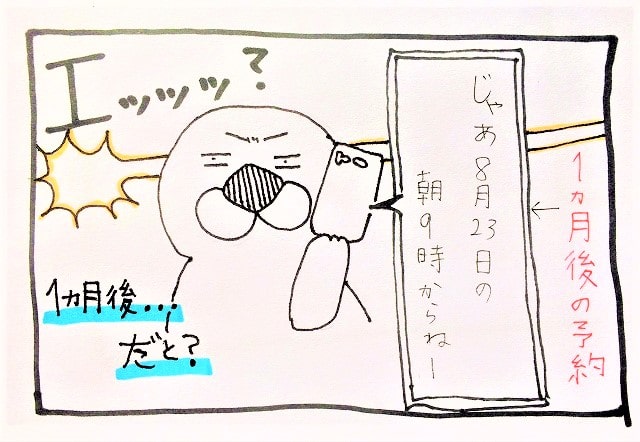 1ヵ月後の予約
じゃあ8月23日の
朝9時からねー
エッッッ?
1ヵ月後...
だと?